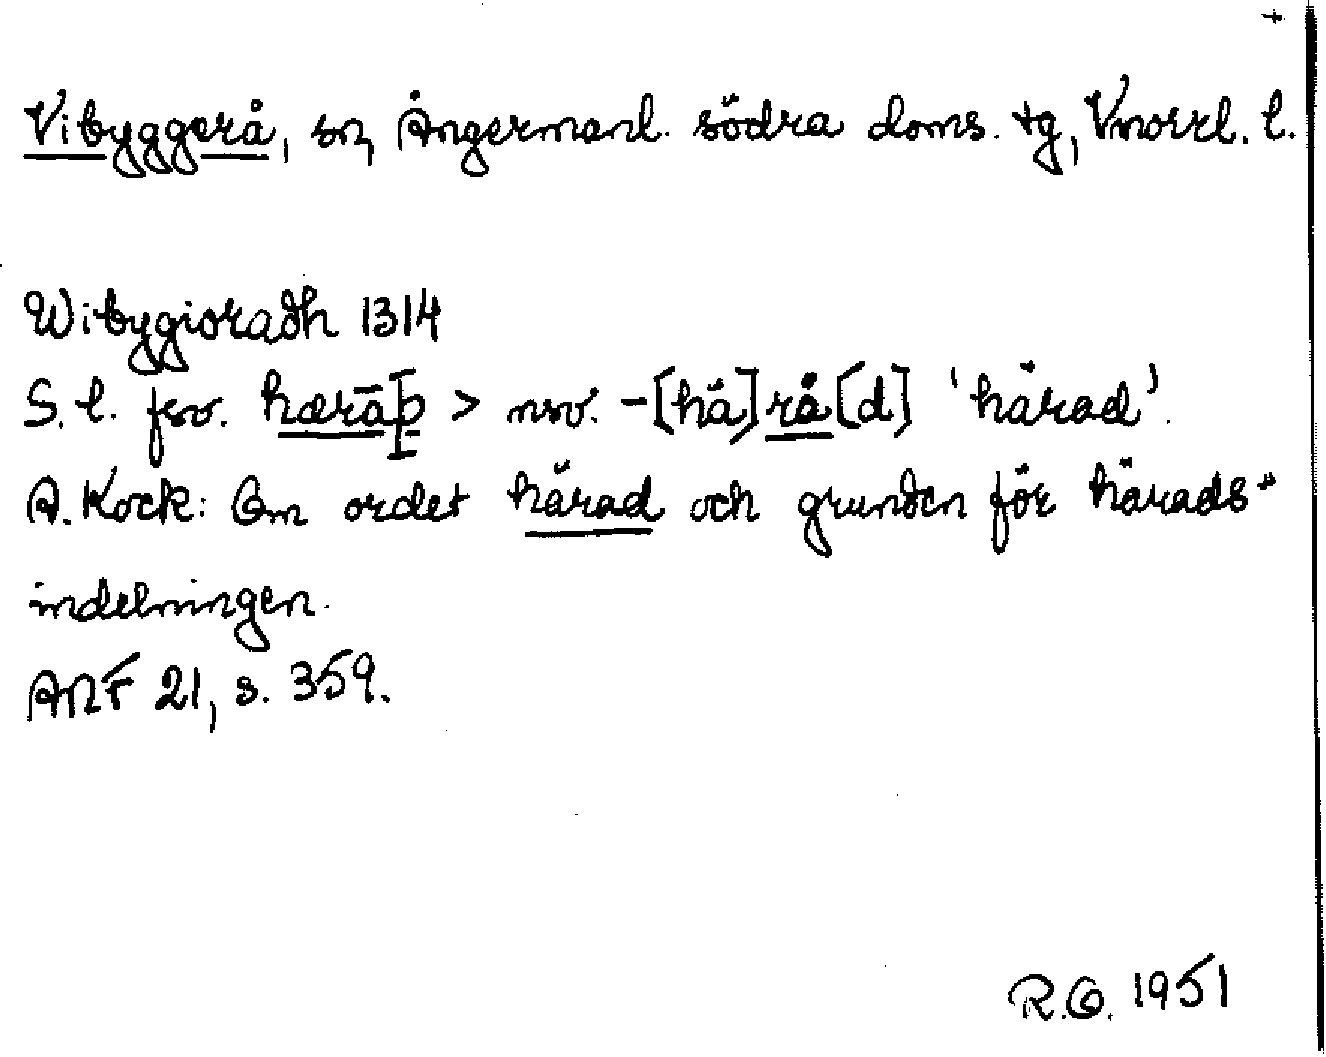 +
Vibyggerå, sn, Ångermanl. södra doms. tg, Vnorrl. l.
Wibygioradh 1314
S. l. fsv. hærāþ > nsv. -[hä]rå[d] 'härad'.
A. Kock: Om ordet härad och grunden för härads-
indelningen.
ANF 21, s. 359.
R.O. 1951